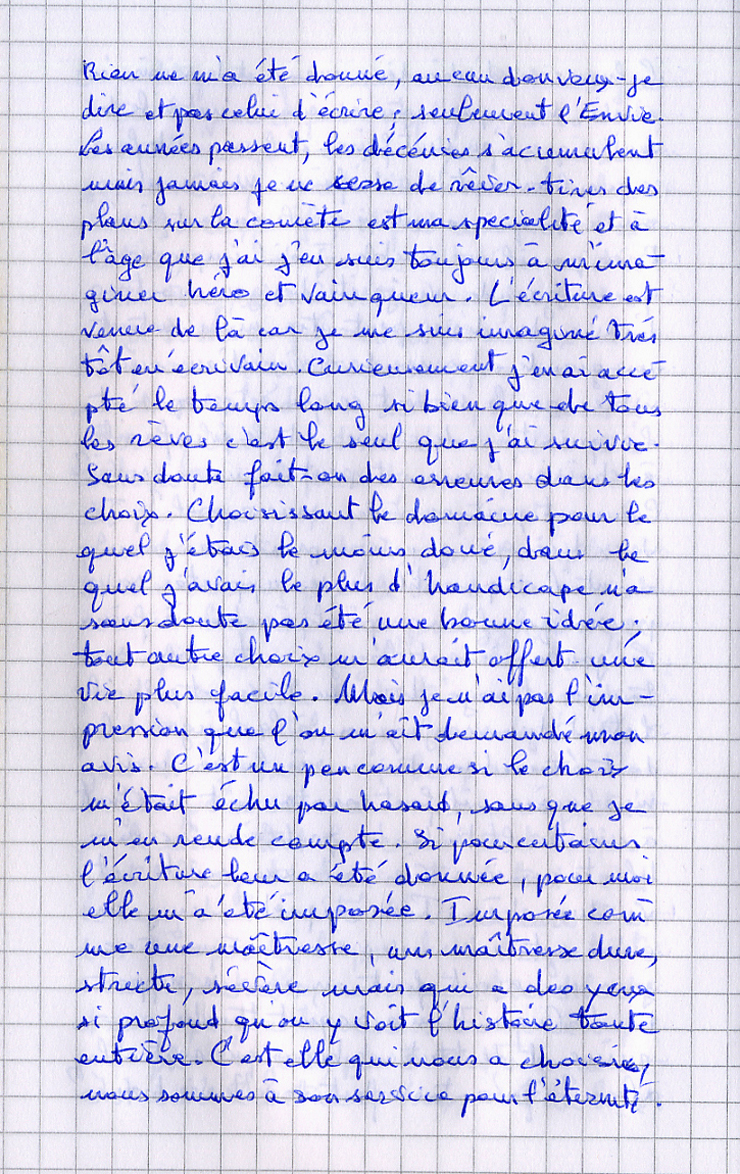 Rien ne m'a été donné, aucun don veux-je
dire et pas celui d'écrire; seulement l'Envie.
Les années passent, les décénies s'acumulent
mais jamais je ne cesse de rêver. tirer des
plans sur la comète est ma specialité et à
l'âge que j'ai j'en suis toujours à m'ima-
giner héro et vainqueur. L'écriture est
venue de là car je me suis imaginé très
tôt en écrivain. Curieusement j'en ai acce
pté le temps long si bien que de tous
les rêves c'est le seul que j'ai suivie.
Sans doute fait-on des erreures dans les
choix. Choisissant le domaine pour le
quel j'étais le moins doué, dans le
quel j'avais le plus d'handicape n'a
sans doute pas été une bonne idée;
tout autre choix m'aurait offert une
vie plus facile. Mais je n'ai pas l'im-
pression que l'on m'ait demandé mon
avis. C'est un peu comme si le choix
m'était échu par hasard, sans que je
m'en rende compte. Si pour certains
l'écriture leur a été donnée, pour moi
elle m'a été imposée. Imposée com
me une maîtresse, une maîtresse dure,
stricte, sévère mais qui a des yeux
si profond qu'on y voit l'histoire toute
entière. C'est elle qui nous a choisies,
nous sommes à son service pour l'éternité.